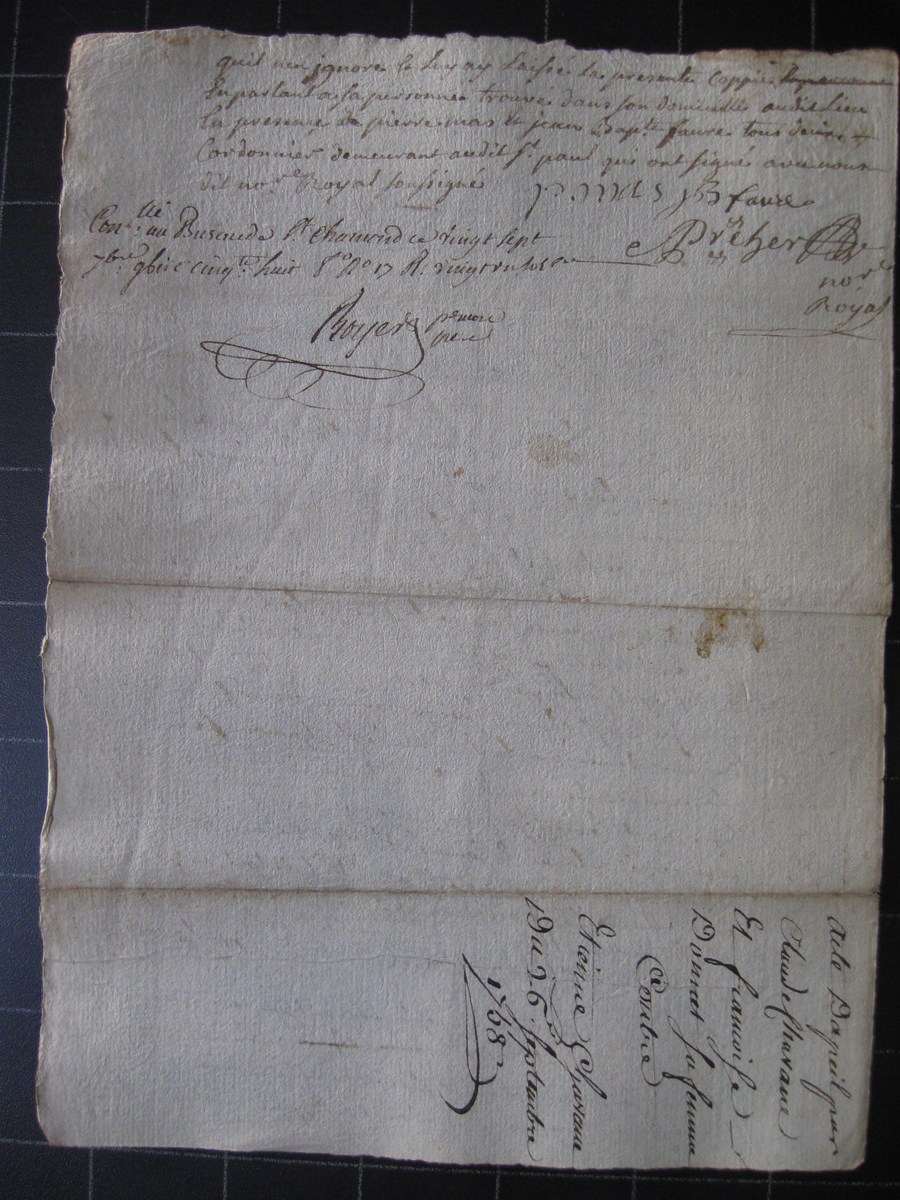 quil nen jgnore le luy ay laissé la presente coppie
En parlant a sa personne trouvé dans son domicille audit lieu
En presence de pierre mas & jean Bapte faure tous deux
Cordonnier demeurant audit St. paul qui ont signé avec nous
dit nore Royal soussigné
p. mas jB faure
Conllé au Bureau de St. Chamond ce vingt sept
7bre cinqte huit fo No 17 R.
nore
Royal
Royer
Acte Dapeil par
Claude Chavane
Et francoise
Donnet sa femme
Contre
Etienne Chavane
Du 26. Septembre
1758